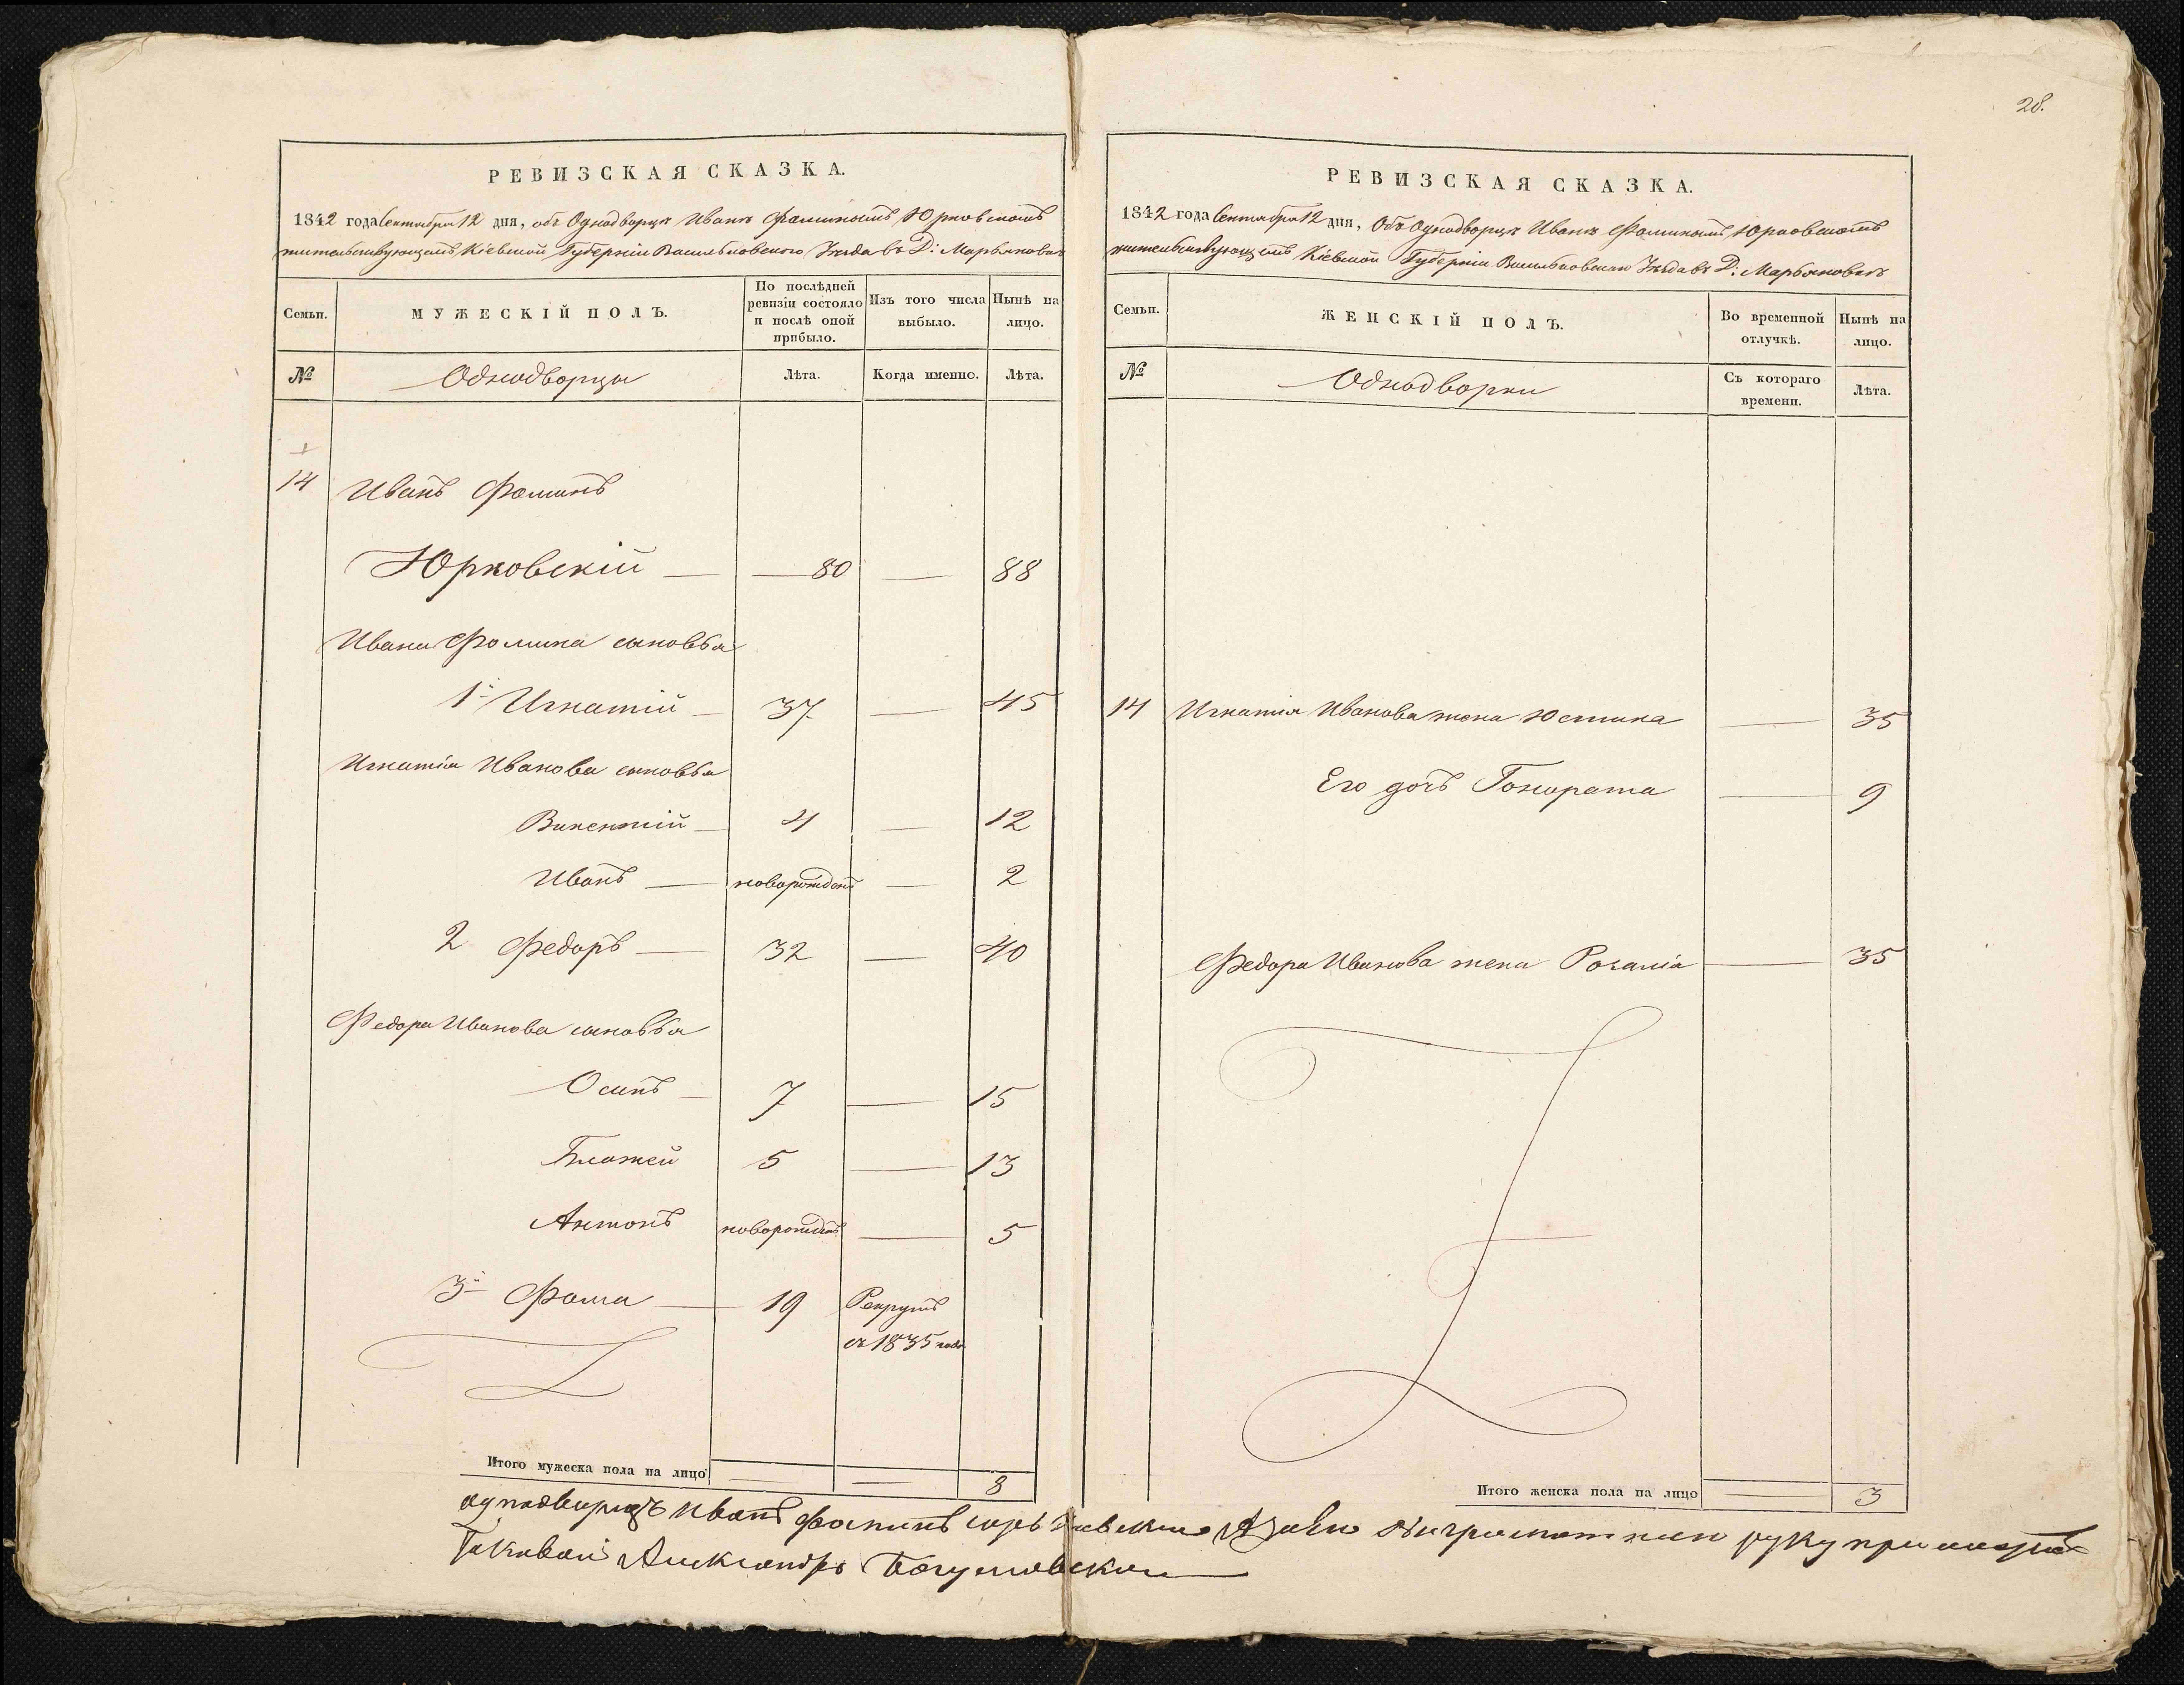 28.
РЕВИЗСКАЯ СКАЗКА.
1842 года Сентября 12 дня, объ Однодворцѣ Иванѣ Фоминомъ Юрковскомъ
жительствующемъ Кіевской Губерніи Васильковского Уѣзда въ Д: Марьяновкѣ
Семьи.
МУЖЕСКІЙ ПОЛЪ.
По послѣдней ревизіи состояло и послѣ оной прибыло.
Изъ того числа выбыло.
Нынѣ на лицо.
№
Однодворцы
Лѣта.
Когда именно.
Лѣта.
14 Иванъ Фоминъ
Юрковскій — 80 — 88
Ивана Фомина сыновья
1й Игнатій — 37 — 45
Игнатія Иванова сыновья
Викентій — 4 — 12
Иванъ — новорожденъ — 2
2 Федоръ — 32 — 40
Федора Иванова сыновья
Осипъ — 7 — 15
Блажей 5 — 13
Антонъ новорожденъ — 5
3й Фома — 19 Рекрутъ
съ 1835 года
Итого мужеска пола на лицо — — 8
РЕВИЗСКАЯ СКАЗКА.
1842 года Сентября 12 дня, Объ Однодворцѣ Иванѣ Фоминомъ Юрковскомъ
жительствующемъ Кіевской Губерніи Васильковскаго Уѣзда въ Д: Марьяновкѣ
Семьи.
ЖЕНСКІЙ ПОЛЪ.
Во временной отлучкѣ.
Нынѣ на лицо.
№
Однодворки
Съ котораго времени.
Лѣта.
14 Игнатія Иванова жена Юстина — 35
Его дочь Гонората — 9
Федора Иванова жена Розалія — 35
Итого женска пола на лицо — 3
однодворецъ Иванъ Фоминъ сынъ руку приложилъ
Александръ